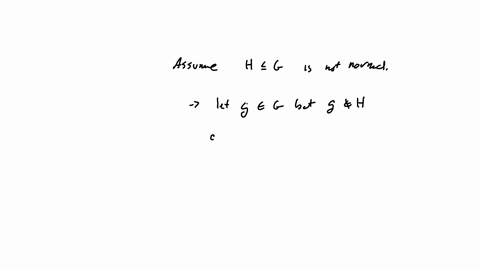 Assume H ≤ G is not normal.
-> let g ∈ G but g ∉ H
c